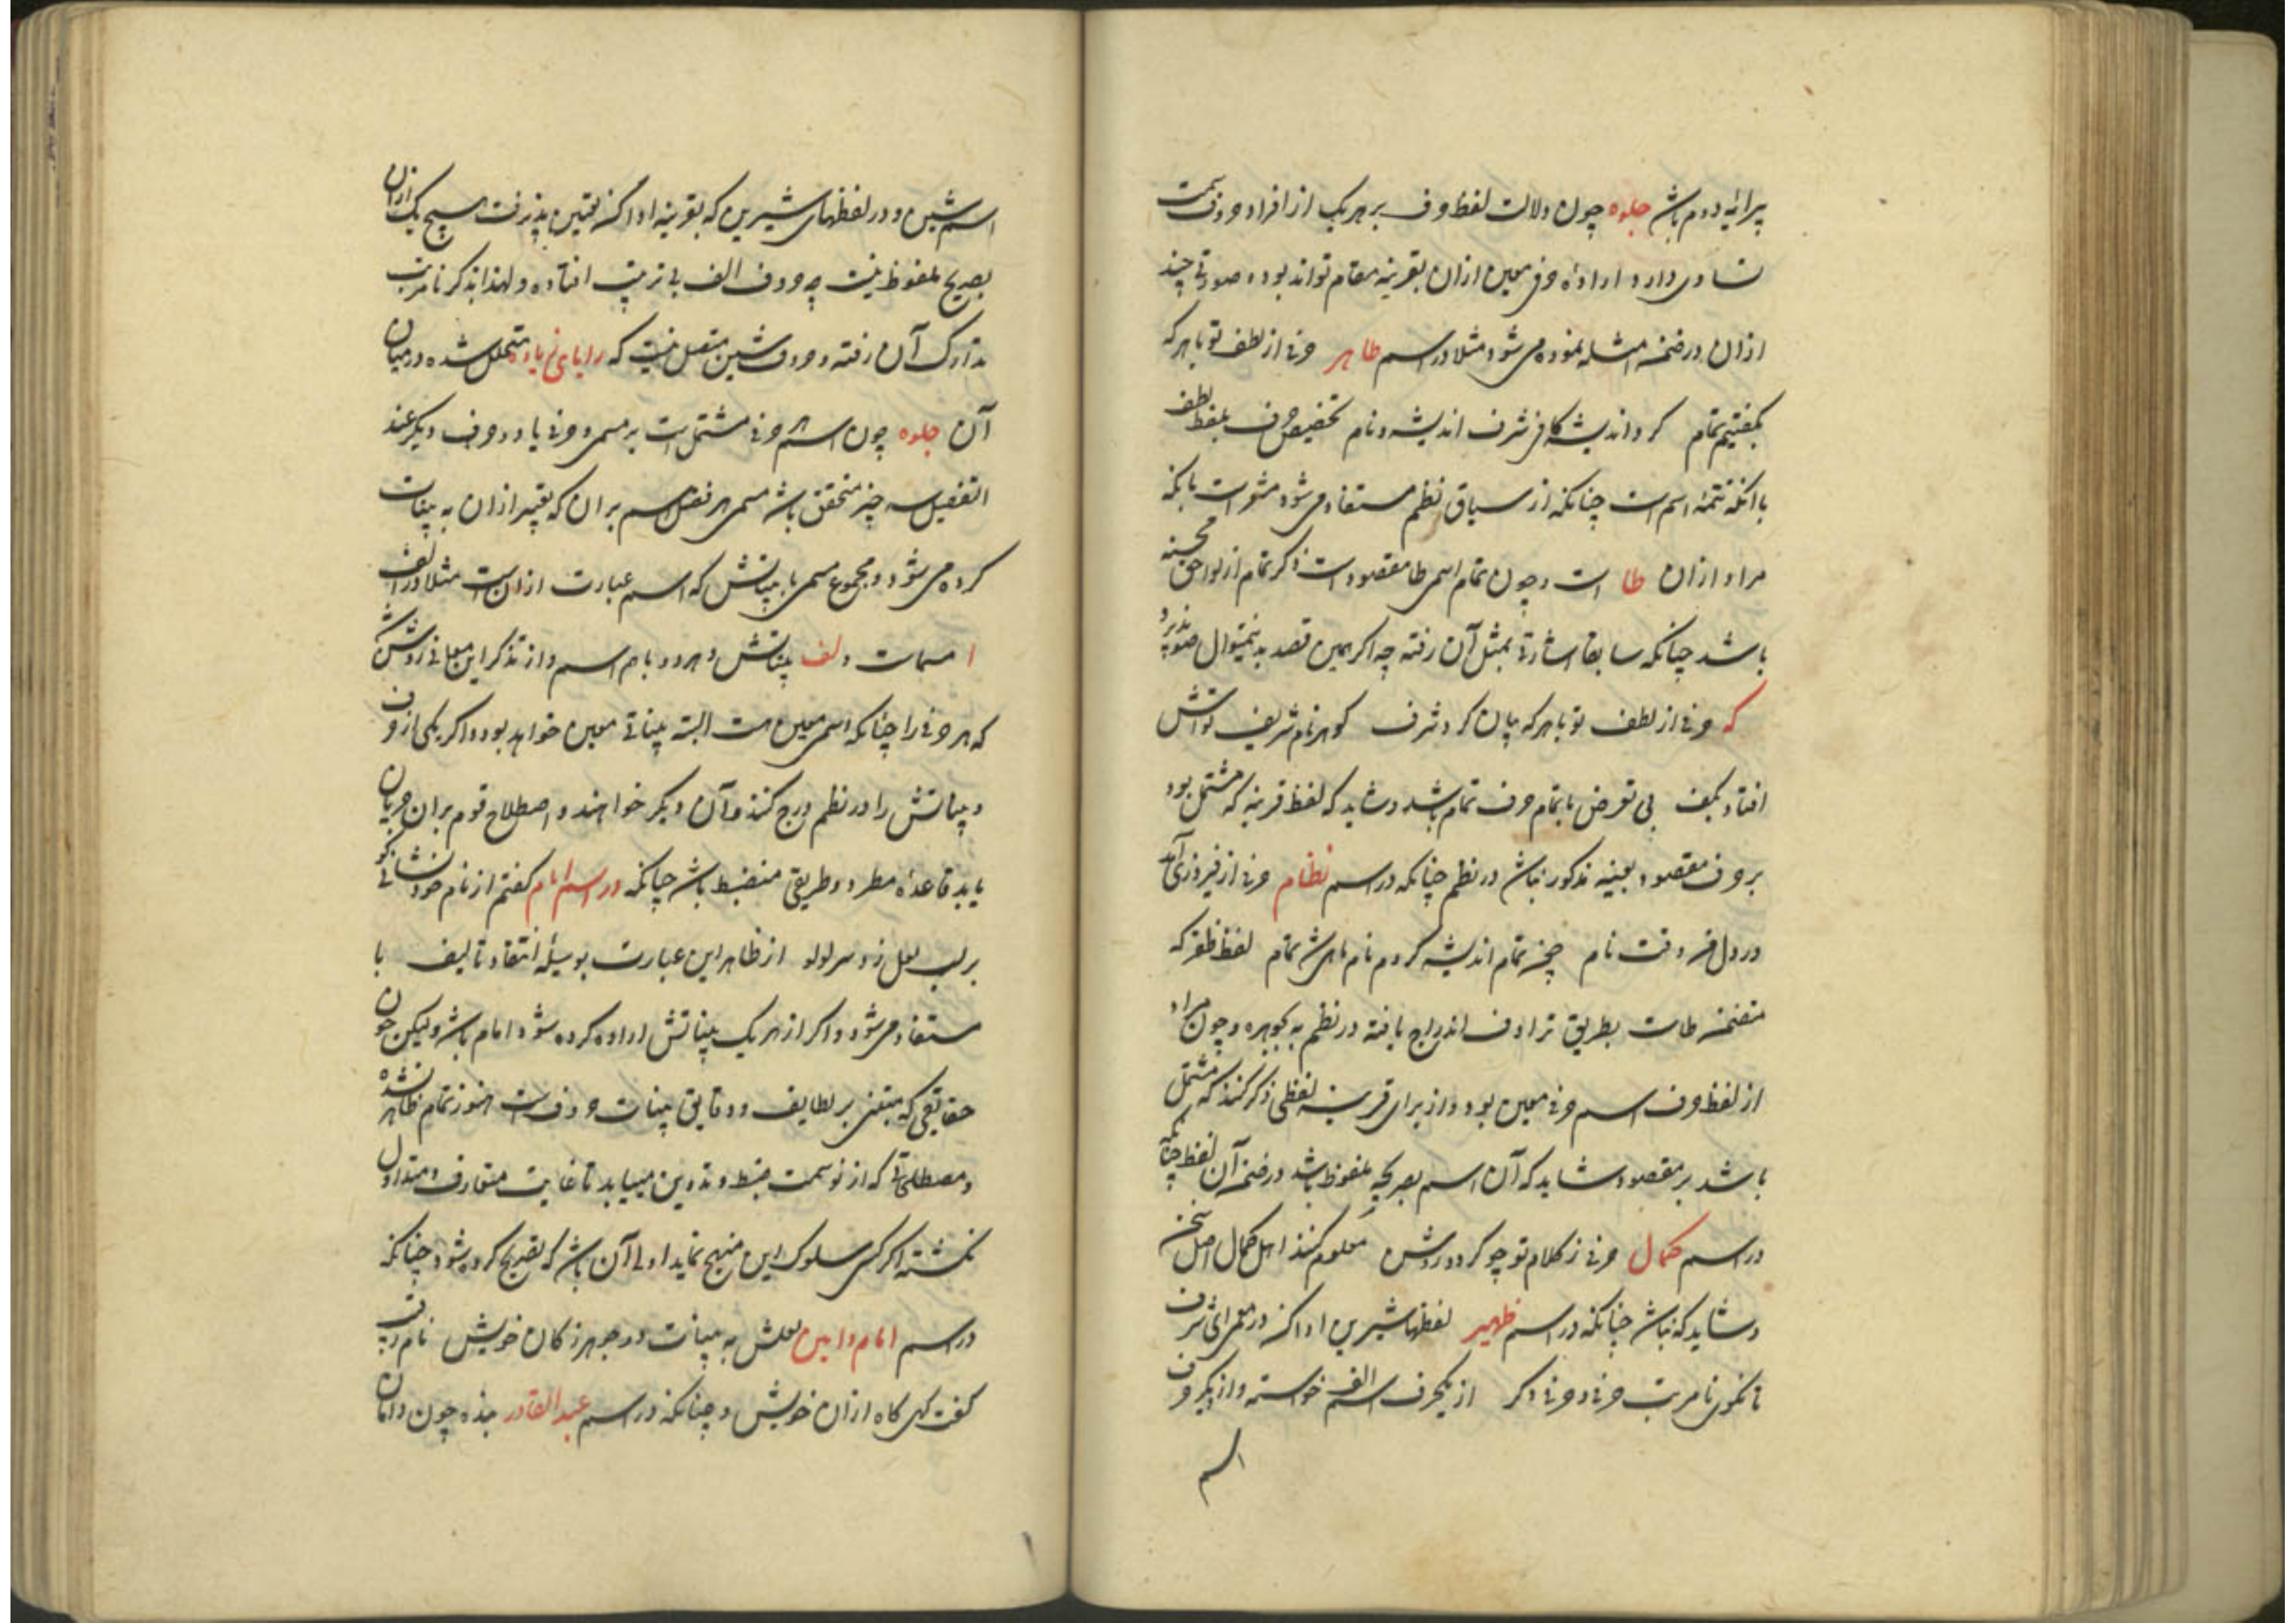 پیرایه دوم باشد جلوه چون دلالت لفظ حرف بر هر یک از افراد حروف سمت
تساوی دارد و ارادهٔ حرفی معین ازان بقرینه مقام تواند بود و صورتی چند
ازان در ضمن امثله نموده می شود مثلا در اسم طاهر حرفی از لطف تو با هر که
بگفتیم تمام کرد اندیشه کافی شرف اندیشه و نام تخصیص حرف بلفظ لطف
با آنکه تتمهٔ اسم است چنانکه از سیاق نظم مستفاد می شود مشعرست بانکه
مراد ازان طا است و چون تمام اسمی طا مقصود است ذکر تمام از لواحق محسنه
باشد چنانکه سابقا اشارتی بمثل آن رفته چه اگر همین قصد بدینمنوال صورت پذیرد
که حرفی از لطف تو با هر که بیان کرد شرف گوهر نام شریف تواش
افتاد بکف بی تعرض باتمام حرف تمام باشد و شاید که لفظ قرینه که مشتمل بود
بر حرف مقصود بعینه مذکور نباشد در نظم چنانکه در اسم نظام حرفی از فیروزی آمد
در دل فرّ وقت نام چیز تمام اندیشه کردم نام باشد تمام لفظ ظفر که
متضمن ظاست بطریق ترادف اندراج یافته در نظم نه بجوهره و چون مراد
از لفظ حرف اسم حرفی معین بود و از برای قرینه لفظی ذکر کنند که مشتمل
باشد بر مقصود شاید که آن اسم بصریحه ملفوظ باشد در ضمن آن لفظ چنانکه
در اسم کمال حرفی ز کلام تو چو کردد روشن معلوم کنند اهل کمال اصل سخن
و شاید که نباشد چنانکه در اسم ظهیر لفظهای شیرین ادا کن در معمای شرف
تا نکوی نام مرتب حرفی و حرفی دگر از یکحرف اسم الف خواسته و از دیگر حرف
اسم
اسم شین و در لفظهای شیرین که بقرینه ادا کن تعیین پذیرفت هیچ یک ازان
بصریح ملفوظ نیست چه حروف الف بی ترتیب افتاده و لهذا بذکر نام مرتب
تدارک آن رفته و حروف شین متصل نیست که را یا یی زیاده متخلل شده در میان
آن جلوه چون اسم هر حرفی مشتمل است بر مسمی و حرفی یا دو حرف دیگر عند
التفصیل سه چیز متحقق باشد مسمی و نفس اسم بران که تعبیر ازان به بینات
کرده می شود و مجموع مسمی با بیناتش که اسم عبارت ازان است مثلا در الف
ا مسمات و لف بیناتش و هر دو باهم اسم و از تذکر این معانی روشن شد
که هر حرفی را چنانکه اسمی معین هست البته بیناتی معین خواهد بود و اگر یکی از حروف
و بیناتش را در نظم درج کنند و آن دیگر خواهند و اصطلاح قوم بران جریان
یابد قاعدهٔ مطرد و طریقی منضبط باشد چنانکه در اسم امام گفتم از نام خود نشانی گو
بر لب لعل زد سر لولو از ظاهر این عبارت بوسیله انتقاد و تالیف با
مستفاد می شود و اگر از هر یک بیناتش اراده کرده شود امام باشد ولیکن چون
حقایقی که مبتنی بر لطایف و دقایق بینات حروف است هنوز تمام ظاهر نشده
و مصطلحاتی که از نو سمت ضبط و تدوین مییابد تا غایت متعارف و متداول
نگشته اگر کسی سلوک این منهج نماید اولی آن باشد که تصریح کرده شود چنانکه
در اسم امام و امین لعلش به بینات دو جوهر ز کان خویش نام رقیب
گفت کهی گاه ازان خویش و چنانکه در اسم عبدالقادر بنده چون دامان